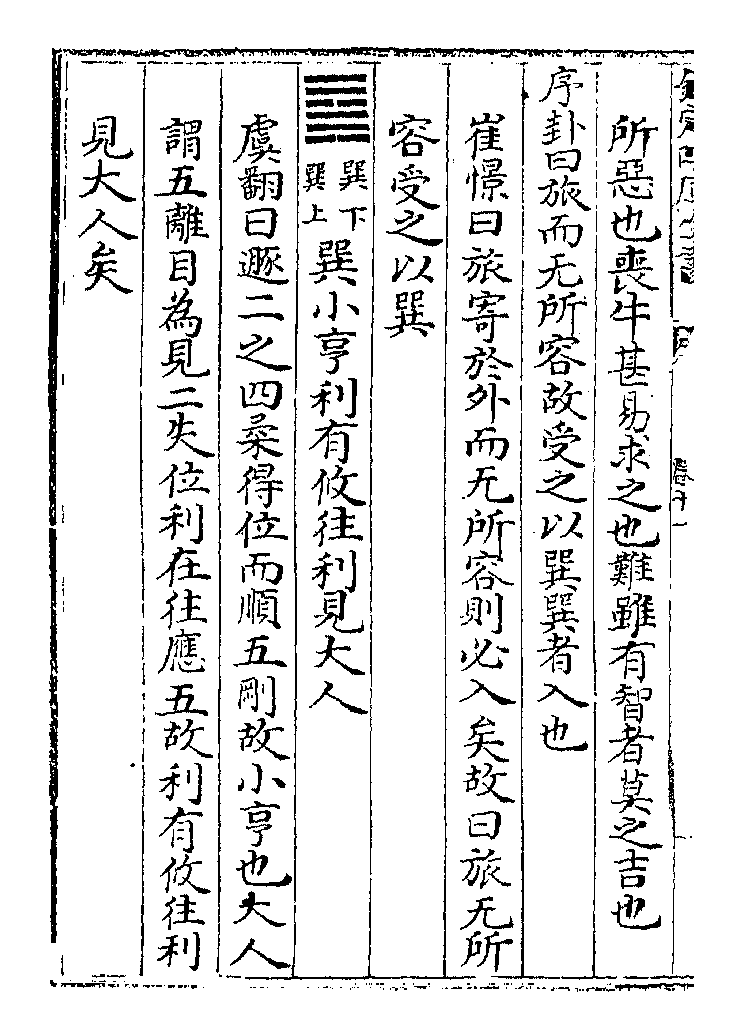 欽定四庫全書
卷十一
所惡也喪牛甚易求之也難雖有智者莫之吉也
序卦曰旅而无所容故受之以巽巽者入也
崔憬曰旅寄於外而无所容則必入矣故曰旅无所
容受之以巽
䷸巽下巽上巽小亨利有攸往利見大人
虞翻曰遯二之四柔得位而順五剛故小亨也大人
謂五離目為見二失位利在往應五故利有攸往利
見大人矣